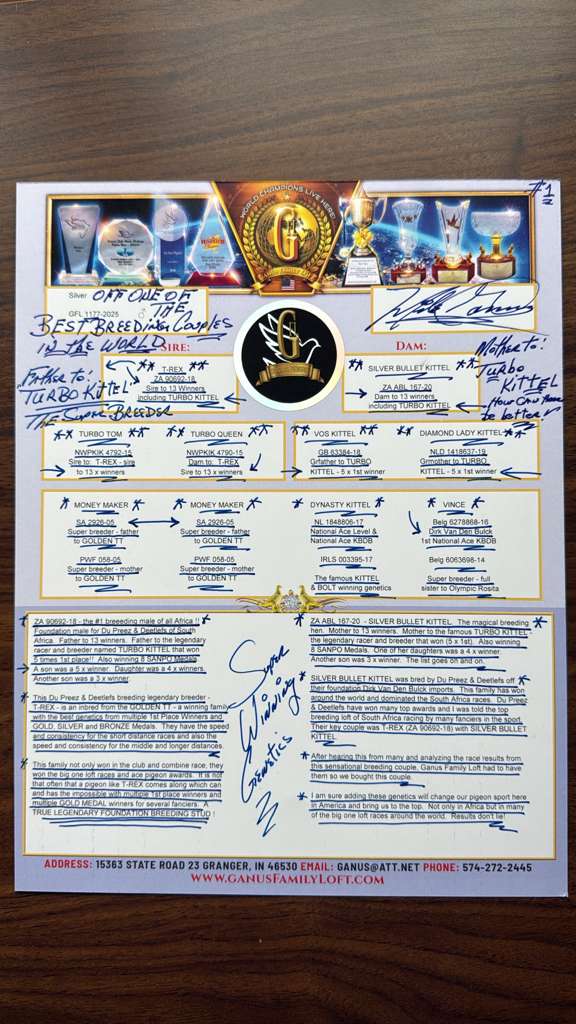 #1
WORLD CHAMPIONS LIVE HERE
G
Silver OFF ONE OF
THE
GFL 1177-2025
BEST BREEDING COUPLES
IN THE WORLD
SIRE:
DAM:
FATHER TO:
TURBO KITTEL
THE SUPER BREEDER
T-REX
ZA 90692-18
Sire to 13 Winners
including TURBO KITTEL
SILVER BULLET KITTEL
ZA ABL 167-20
Dam to 13 winners
including TURBO KITTEL
MOTHER TO:
TURBO
KITTEL
HOW CAN
be better!
TURBO TOM
NWPKIK 4792-15
Sire to: T-REX - sire
to 13 x winners
TURBO QUEEN
NWPKIK 4790-15
Dam to: T-REX
to 13 x winners
VOS KITTEL
GB 63384-18
Grfather to TURBO
KITTEL - 5 x 1st winner
DIAMOND LADY KITTEL
NLD 1418637-19
Grmother to TURBO
KITTEL - 5 x 1st winner
MONEY MAKER
SA 2926-05
Super breeder - father
to GOLDEN TT
PWF 058-05
Super breeder - mother
to GOLDEN TT
MONEY MAKER
SA 2926-05
Super breeder - father
to GOLDEN TT
PWF 058-05
Super breeder - mother
to GOLDEN TT
DYNASTY KITTEL
NL 1848806-17
National Ace Level &
National Ace KBDB
IRLS 003395-17
The famous KITTEL
& BOLT winning genetics
VINCE
Belg 6278868-16
Dirk Van Den Bulck
1st National Ace KBDB
Belg 6063698-14
Super breeder - full
sister to Olympic Rosita
ZA 90692-18 - the #1 breeding male of all Africa !!
Foundation male for Du Preez & Deetlefs of South
Africa. Father to 13 winners. Father to the legendary
racer and breeder named TURBO KITTEL that won
5 times 1st place!! Also winning 8 SANPO Medals.
A son was a 5 x winner. Daughter was a 4 x winner.
Another son was a 3 x winner.
This Du Preez & Deetlefs breeding legendary breeder -
T-REX - is an inbred from the GOLDEN TT - a winning family
with the best genetics from multiple 1st Place Winners and
GOLD, SILVER and BRONZE Medals. They have the speed
and consistency for the short distance races and also the
speed and consistency for the middle and longer distances.
This family not only won in the club and combine race, they
won the big one loft races and ace pigeon awards. It is not
that often that a pigeon like T-REX comes along which can
and has the impossible with multiple 1st place winners and
multiple GOLD MEDAL winners for several fanciers. A
TRUE LEGENDARY FOUNDATION BREEDING STUD !
Super
Winning
Genetics
ZA ABL 167-20 - SILVER BULLET KITTEL. The magical breeding
hen. Mother to 13 winners. Mother to the famous TURBO KITTEL -
the legendary racer and breeder that won (5 x 1st). Also winning
8 SANPO Medals. One of her daughters was a 4 x winner.
Another son was 3 x winner. The list goes on and on.
SILVER BULLET KITTEL was bred by Du Preez & Deetlefs off
their foundation Dirk Van Den Bulck imports. This family has won
around the world and dominated the South Africa races. Du Preez
& Deetlefs have won many top awards and I was told the top
breeding loft of South Africa racing by many fanciers in the sport.
Their key couple was T-REX (ZA 90692-18) with SILVER BULLET
KITTEL.
After hearing this from many and analyzing the race results from
this sensational breeding couple, Ganus Family Loft had to have
them so we bought this couple.
I am sure adding these genetics will change our pigeon sport here
in America and bring us to the top. Not only in Africa but in many
of the big one loft races around the world. Results don't lie!
ADDRESS: 15363 STATE ROAD 23 GRANGER, IN 46530 EMAIL: GANUS@ATT.NET PHONE: 574-272-2445
WWW.GANUSFAMILYLOFT.COM